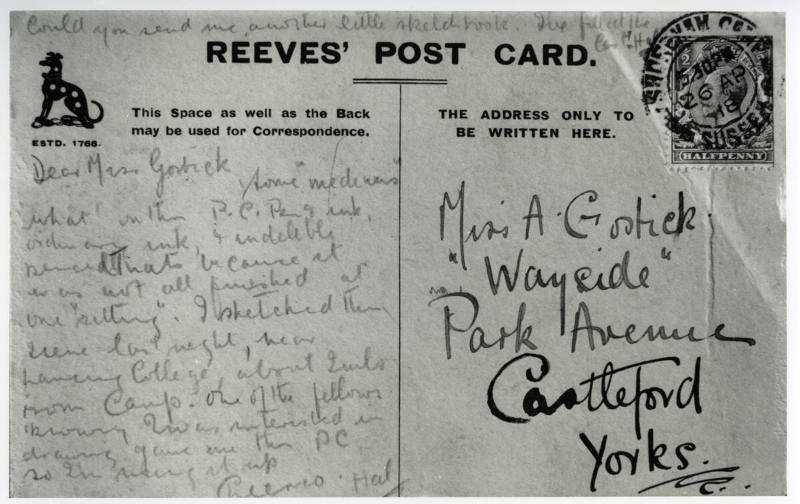 Could you send me another little sketch book. I've filled the
Hal
REEVES' POST CARD.
ESTD. 1766.
This Space as well as the Back
may be used for Correspondence.
Dear Miss Gostick
Some "mediums"
what on this P.C. Pen & ink,
ordinary ink, & indelible
pencil thats because it
was not all finished at
one "sitting". I sketched this
scene last night, near
Lancing College about 2 miles
from Camp. One of the fellows
knowing I was interested in
drawing gave me this PC,
so I'm using it up
Cheerio. Hal
THE ADDRESS ONLY TO
BE WRITTEN HERE.
SHOREHAM
26 AP
18
SUSSEX
HALFPENNY
Miss A. Gostick
"Wayside"
Park Avenue
Castleford
Yorks.